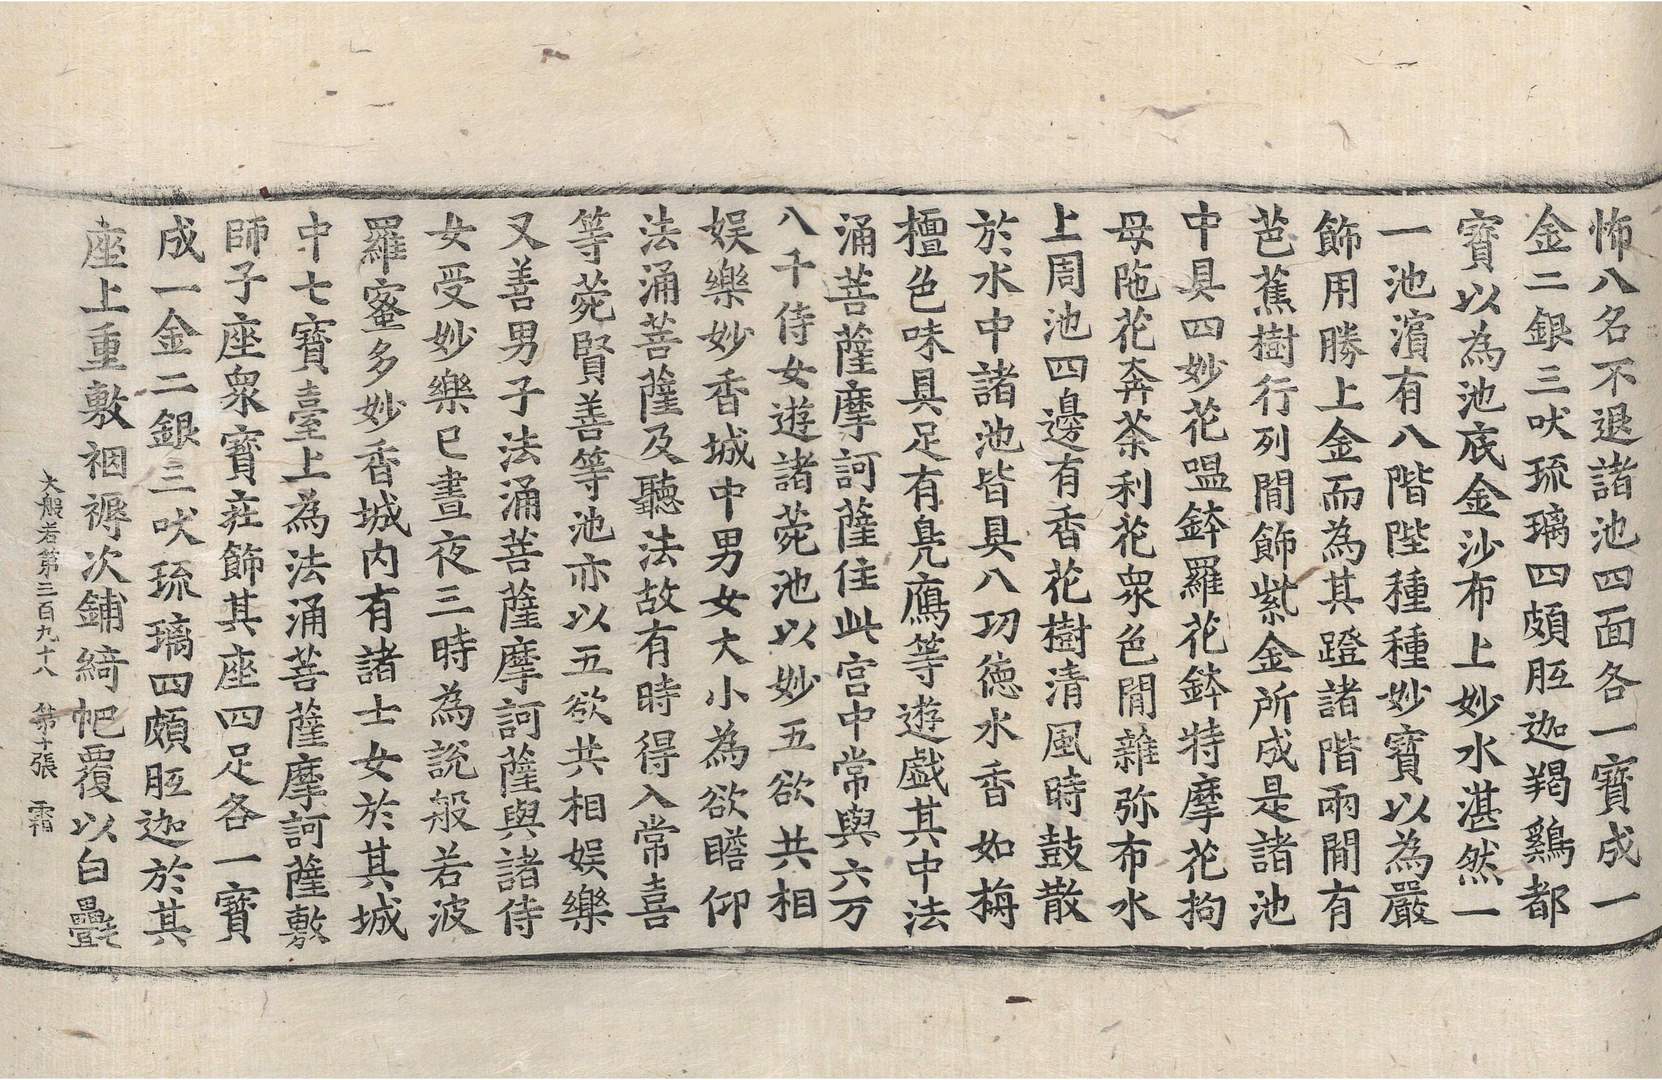 怖八名不退諸池四面各一寶成一
金二銀三吠琉璃四頗胝迦羯鷄都
寶以為池底金沙布上妙水湛然一
一池濱有八階陛種種妙寶以為嚴
飾用勝上金而為其蹬諸階兩閒有
芭蕉樹行列閒飾紫金所成是諸池
中具四妙花嗢鉢羅花鉢特摩花拘
母陁花奔荼利花衆色閒雜弥布水
上周池四邊有香花樹清風時鼓散
於水中諸池皆具八功徳水香如栴
檀色味具足有鳧鴈等遊戲其中法
涌菩薩摩訶薩住此宮中常與六万
八千侍女遊諸菀池以妙五欲共相
娱樂妙香城中男女大小為欲瞻仰
法涌菩薩及聽法故有時得入常喜
等菀賢善等池亦以五欲共相娱樂
又善男子法涌菩薩摩訶薩與諸侍
女受妙樂已晝夜三時為說般若波
羅蜜多妙香城内有諸士女於其城
中七寶臺上為法涌菩薩摩訶薩敷
師子座衆寶莊飾其座四足各一寶
成一金二銀三吠琉璃四頗胝迦於其
座上重敷裀褥次鋪綺帊覆以白㲲
大般若第三百九十八 第十張 霜